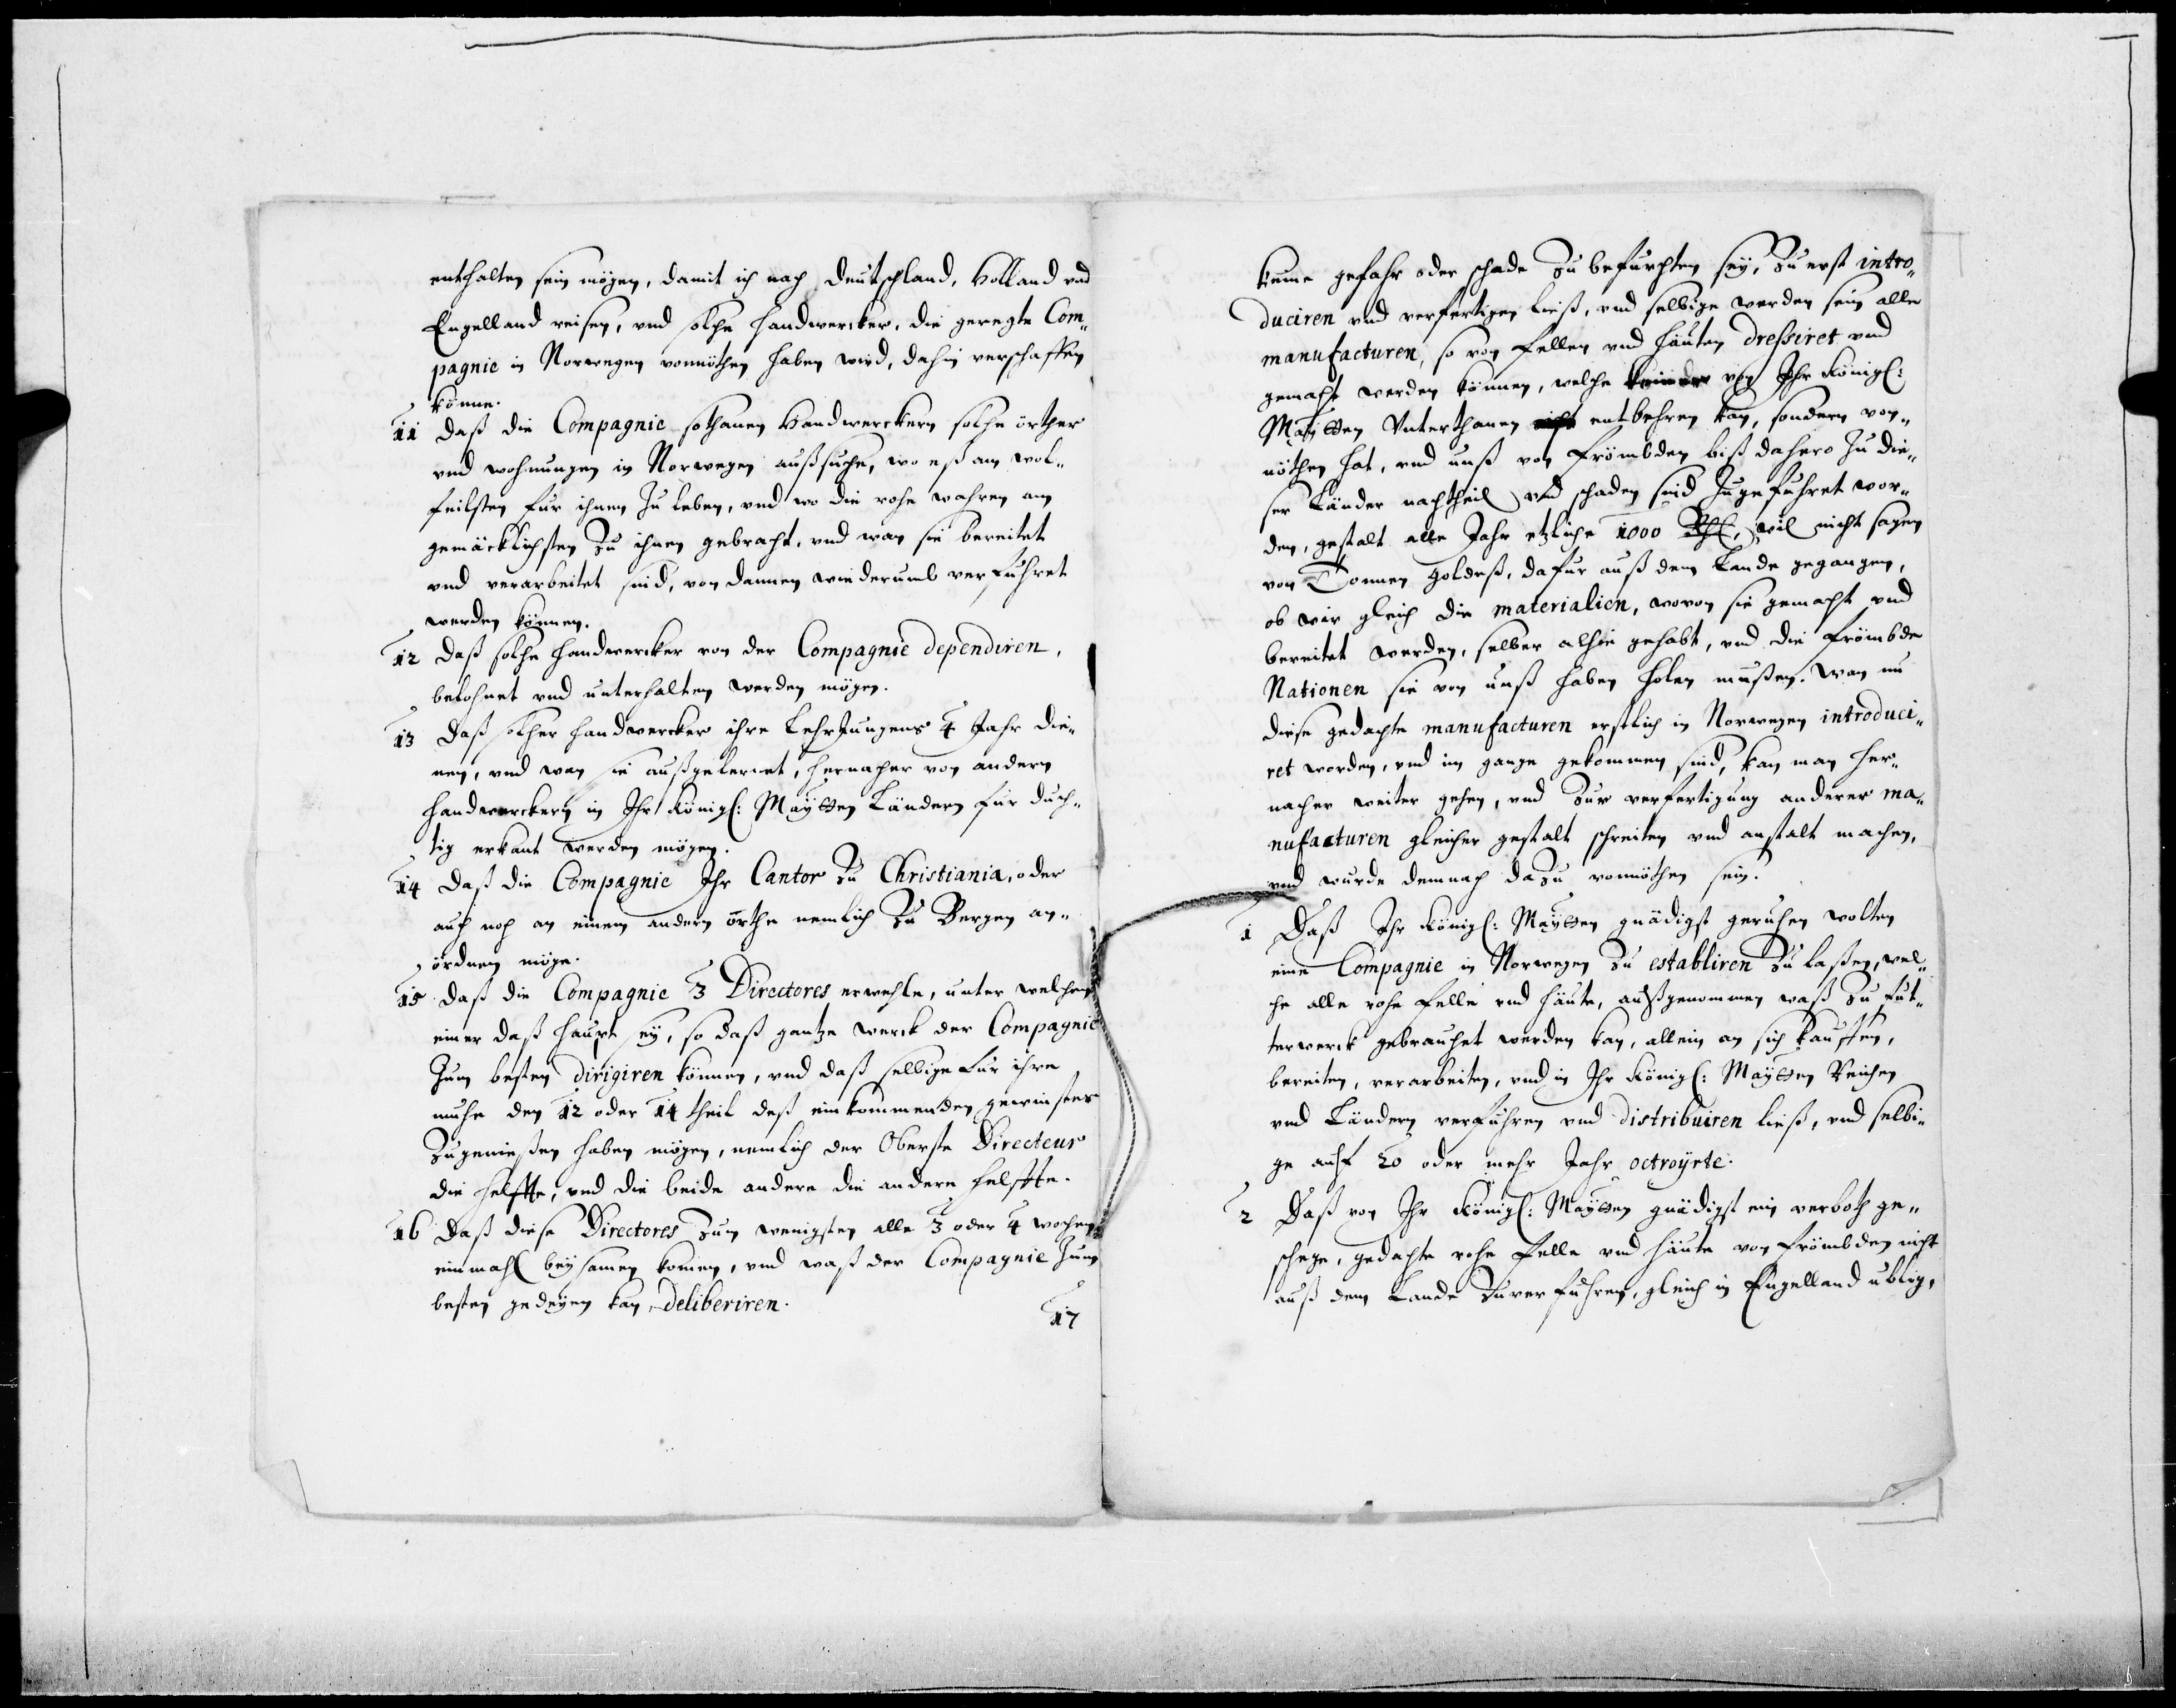 enthalten sein mögen, damit ich nach Deutschland, Holland und
Engelland reisen, und solche handwercker, die geregte Com„
pagnie in Norwegen vonnöthen haben wird, dahin verschaffen
könne.
11 Daß die Compagnie sothanen Handwerckern solche örther
und wohnungen in Norwegen außsuche, wo eß am wol„
feilsten fur ihnen zu leben, und wo die rohe wahren am
gemäcklichsten zu ihnen gebracht, und wan sie bereitet
und verarbeitet sind, von dannen wiederumb verfuhret
werden können.
12 Daß solche handwercker von der Compagnie dependiren,
belohnet und unterhalten werden mögen.
13 Daß solcher handwercker ihre LehrJungens 4 Jahr die„
nen, und wan sie außgelernet, hernacher von andern
handwerckern in Ihr Königl: Maytten Ländern für duch„
tig erkant werden mögen.
14 Daß die Compagnie Ihr Cantor zu Christiania, oder
auch noch an einem andern örthe nemlich zu Bergen an„
ordnen möge.
15 Daß die Compagnie 3 Directores erwehle, unter welchen
einer daß haupt sey, so daß gantze werck der Compagnie
zum besten dirigiren können, und daß selbige für ihre
muhe den 12 oder 14 theil deß einkommenden gewinstes
zugenießen haben mögen, nemlich der Oberste Directeur
die helffte, und die beide andere die andere helffte.
16 Daß diese Directores zum wenigsten alle 3 oder 4 wochen
einmahl beysamen komen, und waß der Compagnie zum
besten gedeyen kan, deliberiren.
17
keine gefahr oder schade zu befurchten sey, zu erst intro„
duciren und verfertigen ließ, und selbige werden sein alle
manufacturen, so von fellen und häuten dreßiret und
gemacht werden können, welche keinder von Ihr Königl:
Maytten Unterthanen nicht entbehren kan, sondern von„
nöthen hat, und unß von frömbden biß dahero zu die„
ser Länder nachtheil und schaden sind zugefuhret wor„
den, gestalt alle Jahr etzliche 1000 Rthl, wil nicht sagen
von Tonnen goldeß, dafur auß dem Lande gegangen,
ob wir gleich die materialien, wovon sie gemacht und
bereitet werden, selber alhie gehabt, und die frömbde
Nationen sie von unß haben holen mußen. Wan nu
diese gedachte manufacturen erstlich in Norwegen introduci„
ret worden, und im gange gekommen sind, kan man her„
nacher weiter gehen, und zur verfertigung anderer ma„
nufacturen gleicher gestalt schreiten und anstalt machen,
und wurde demnach dazu vonnöthen sein.
1 Daß Ihr Königl: Maytten gnädigst geruhen wolten
eine Compagnie in Norwegen zu establiren zu laßen, wel„
che alle rohe felle und häute, außgenommen waß zu fut„
terwerck gebrauchet werden kan, allein an sich kaufften,
bereiten, verarbeiten, und in Ihr Königl: Maytten Reichen
und Ländern verfuhren und distribuiren ließ, und selbi„
ge auff 20 oder mehr Jahr octroyrte.
2 Daß von Ihr Königl: Maytten gnädigst ein verboth ge„
schege, gedachte rohe felle und häute von frömbden nicht
auß dem Lande zuverfuhren, gleich in Engelland ublig,